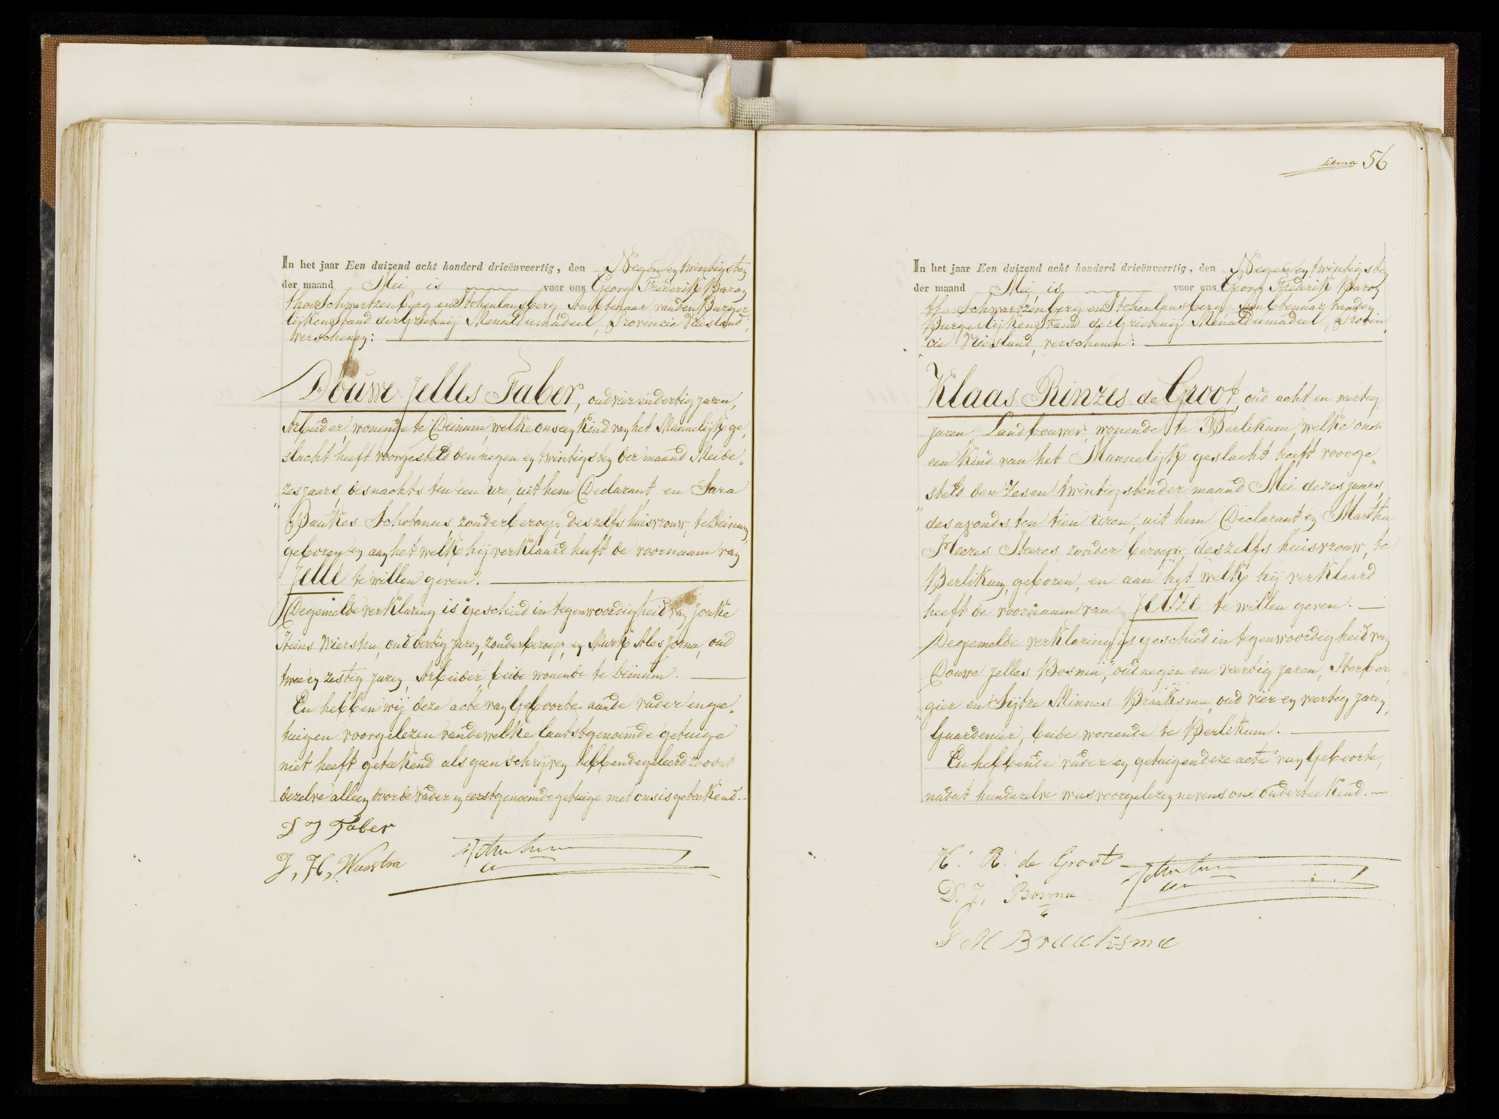 In het jaar Een duizend acht honderd drieënveertig, den Negenentwintigsten
der maand Mei is voor ons Georg Frederik Baron
thoe Schwartzenberg en Hohenlansberg Ambtenaar van den Burger
lijken stand der Grietenij Menaldumadeel, Provincie Vriesland,
verschenen:
Douwe Jelles Faber, oud vier endertig jaren,
Arbeider wonende te Beinum, welke ons een kind van het Mannelijk ge-
slacht heeft voorgesteld den negen en twintigsten der maand Mei de-
zes jaars, des nachts ten een ure, uit hem Declarant en Sara
Paukes Schotanus, zonder beroep, deszelfs huisvrouw, te Beinum
geboren en aan het welk hij verklaard heeft de voornaam van
Jelle te willen geven.
Degemelde verklaring is geschied in tegenwoordigheid van
Heins Wierstra, oud dertig jaren, zonder beroep, en Ales oud
twee en zestig jaren, Arbeider, beide wonende te Beinum.
En hebben wij deze acte van Geboorte aan de vader en ge-
tuigen voorgelezen van dewelke laatstgenoemde getuige
niet heeft getekend als geen schrijven hebbende geleerd zoodat
dezelve alleen door de vader en eerstgenoemde getuige met ons is getekend.
D J Faber
J, H, Wierstra
56
In het jaar Een duizend acht honderd drieënveertig, den Negenentwintigsten
der maand Mei is voor ons Georg Frederik Baron
th. Schwartzenberg en Hohenlansberg Ambtenaar van den
Burgerlijken Stand der Grietenij Menaldumadeel, Provin-
cie Vriesland, verschenen:
Klaas Rinzes de Groot, oud acht en veertig
jaren, Landbouwer, wonende te Berlikum, welke ons
een kind van het Mannelijk geslacht heeft voorge-
steld den zesentwintigsten der maand Mei dezes jaars,
des avonds ten tien uren, uit hem Declarant en Martha
zonder beroep, deszelfs huisvrouw, te
Berlikum geboren, en aan het welk hij verklaard
heeft de voornaam van Jetze te willen geven.
Degemelde verklaring is geschied in tegenwoordigheid van
Douwe Jelles Bosma, oud negen en veertig jaren, Herber-
gier en Sijtze Minnes Braaksma, oud vier en veertig jaren,
Gardenier, beide wonende te Berlikum.
En hebben de vader en getuigen deze acte van Geboorte,
nadat hun dezelve was voorgelezen nevens ons onderteekend.
K. R. de Groot
D. J. Bosma
S M Braaksma